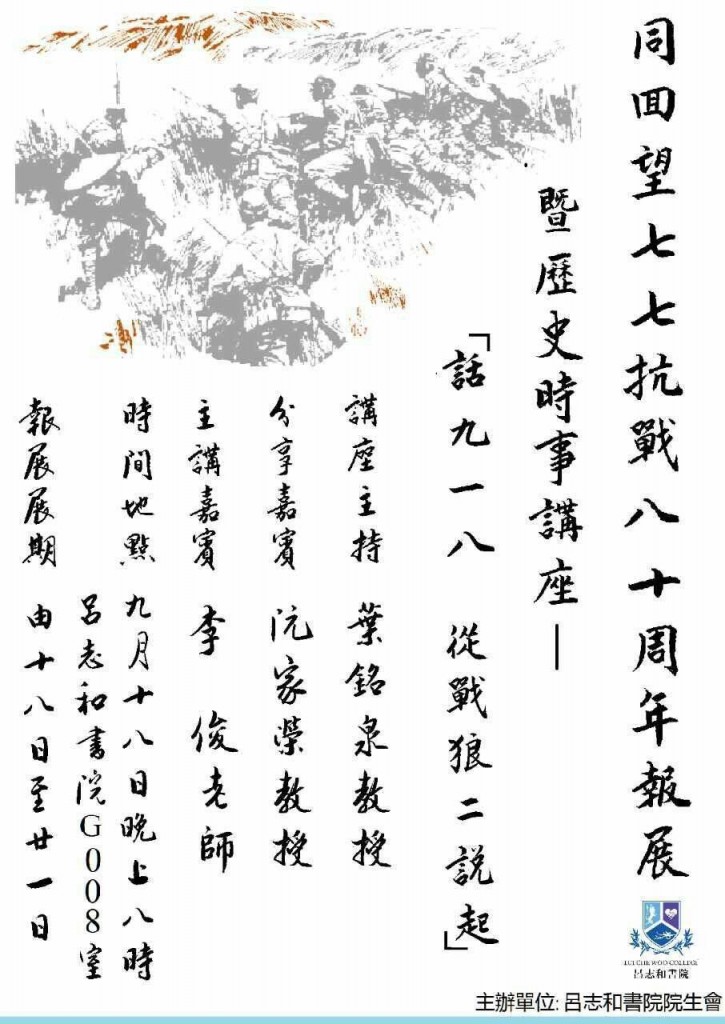 同回望七七抗戰八十周年報展
暨歷史時事講座—
「話九一八 從戰狼二説起」
講座主持 葉銘泉教授
分享嘉賓 阮家榮教授
主講嘉賓 李 俊老師
時間地點 九月十八日晚上八時
呂志和書院G008室
報展展期 由十八日至廿一日
LUI CHE WOO COLLEGE
呂志和書院
主辦單位: 呂志和書院院生會